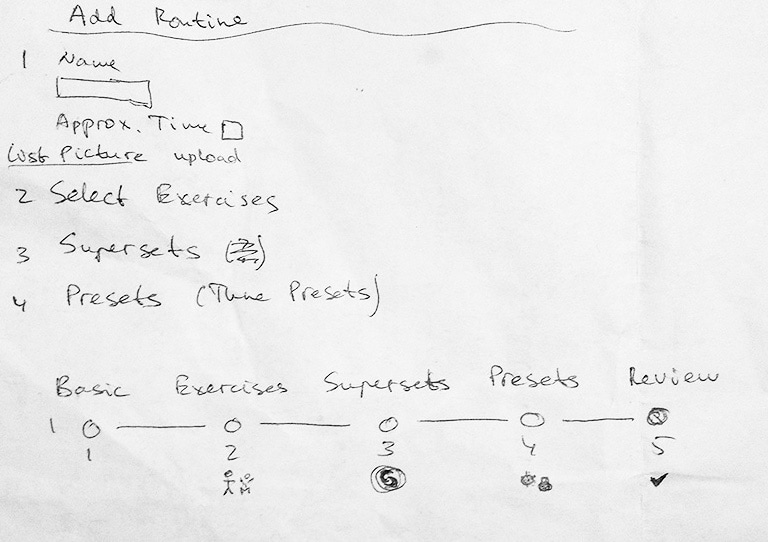 Add Routine
1 Name
Approx. Time
Cust Picture upload
2 Select Exercises
3 Supersets
4 Presets (Time Presets)
Basic Exercises Supersets Presets Review
1
1 2 3 4 5